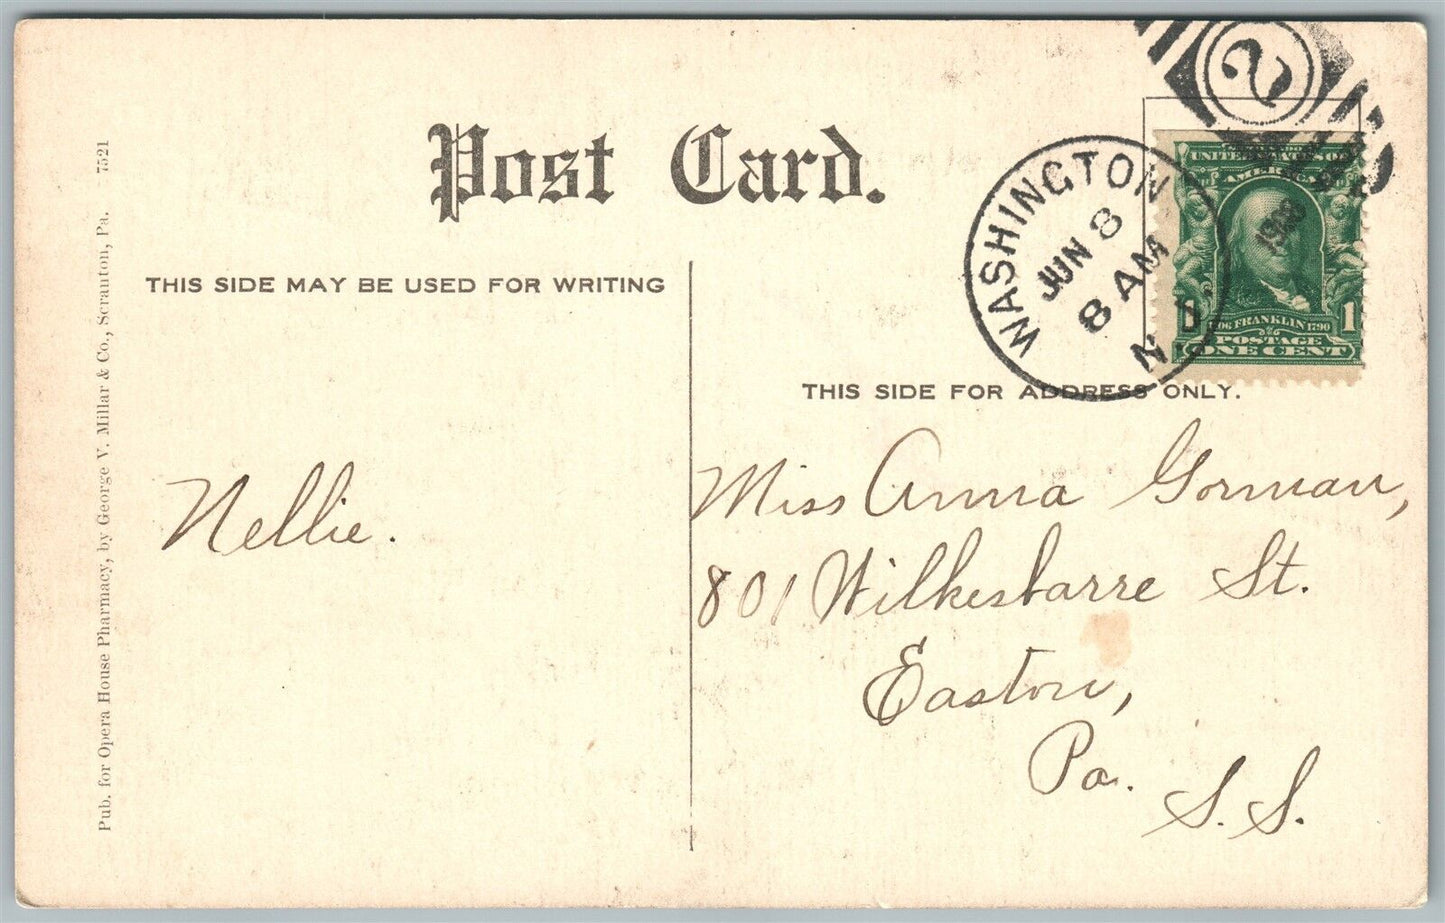 Post Card.
THIS SIDE MAY BE USED FOR WRITING
THIS SIDE FOR ADDRESS ONLY.
Pub. for Opera House Pharmacy, by George V. Millar & Co., Scranton, Pa. 7521
WASHINGTON
JUN 8
8 AM
N.J.
1908
2
UNITED STATES OF
AMERICA
FRANKLIN 1790
1 1
POSTAGE
ONE CENT
Nellie.
Miss Anna Gorman,
801 Wilkesbarre St.
Easton,
Pa.
S. S.